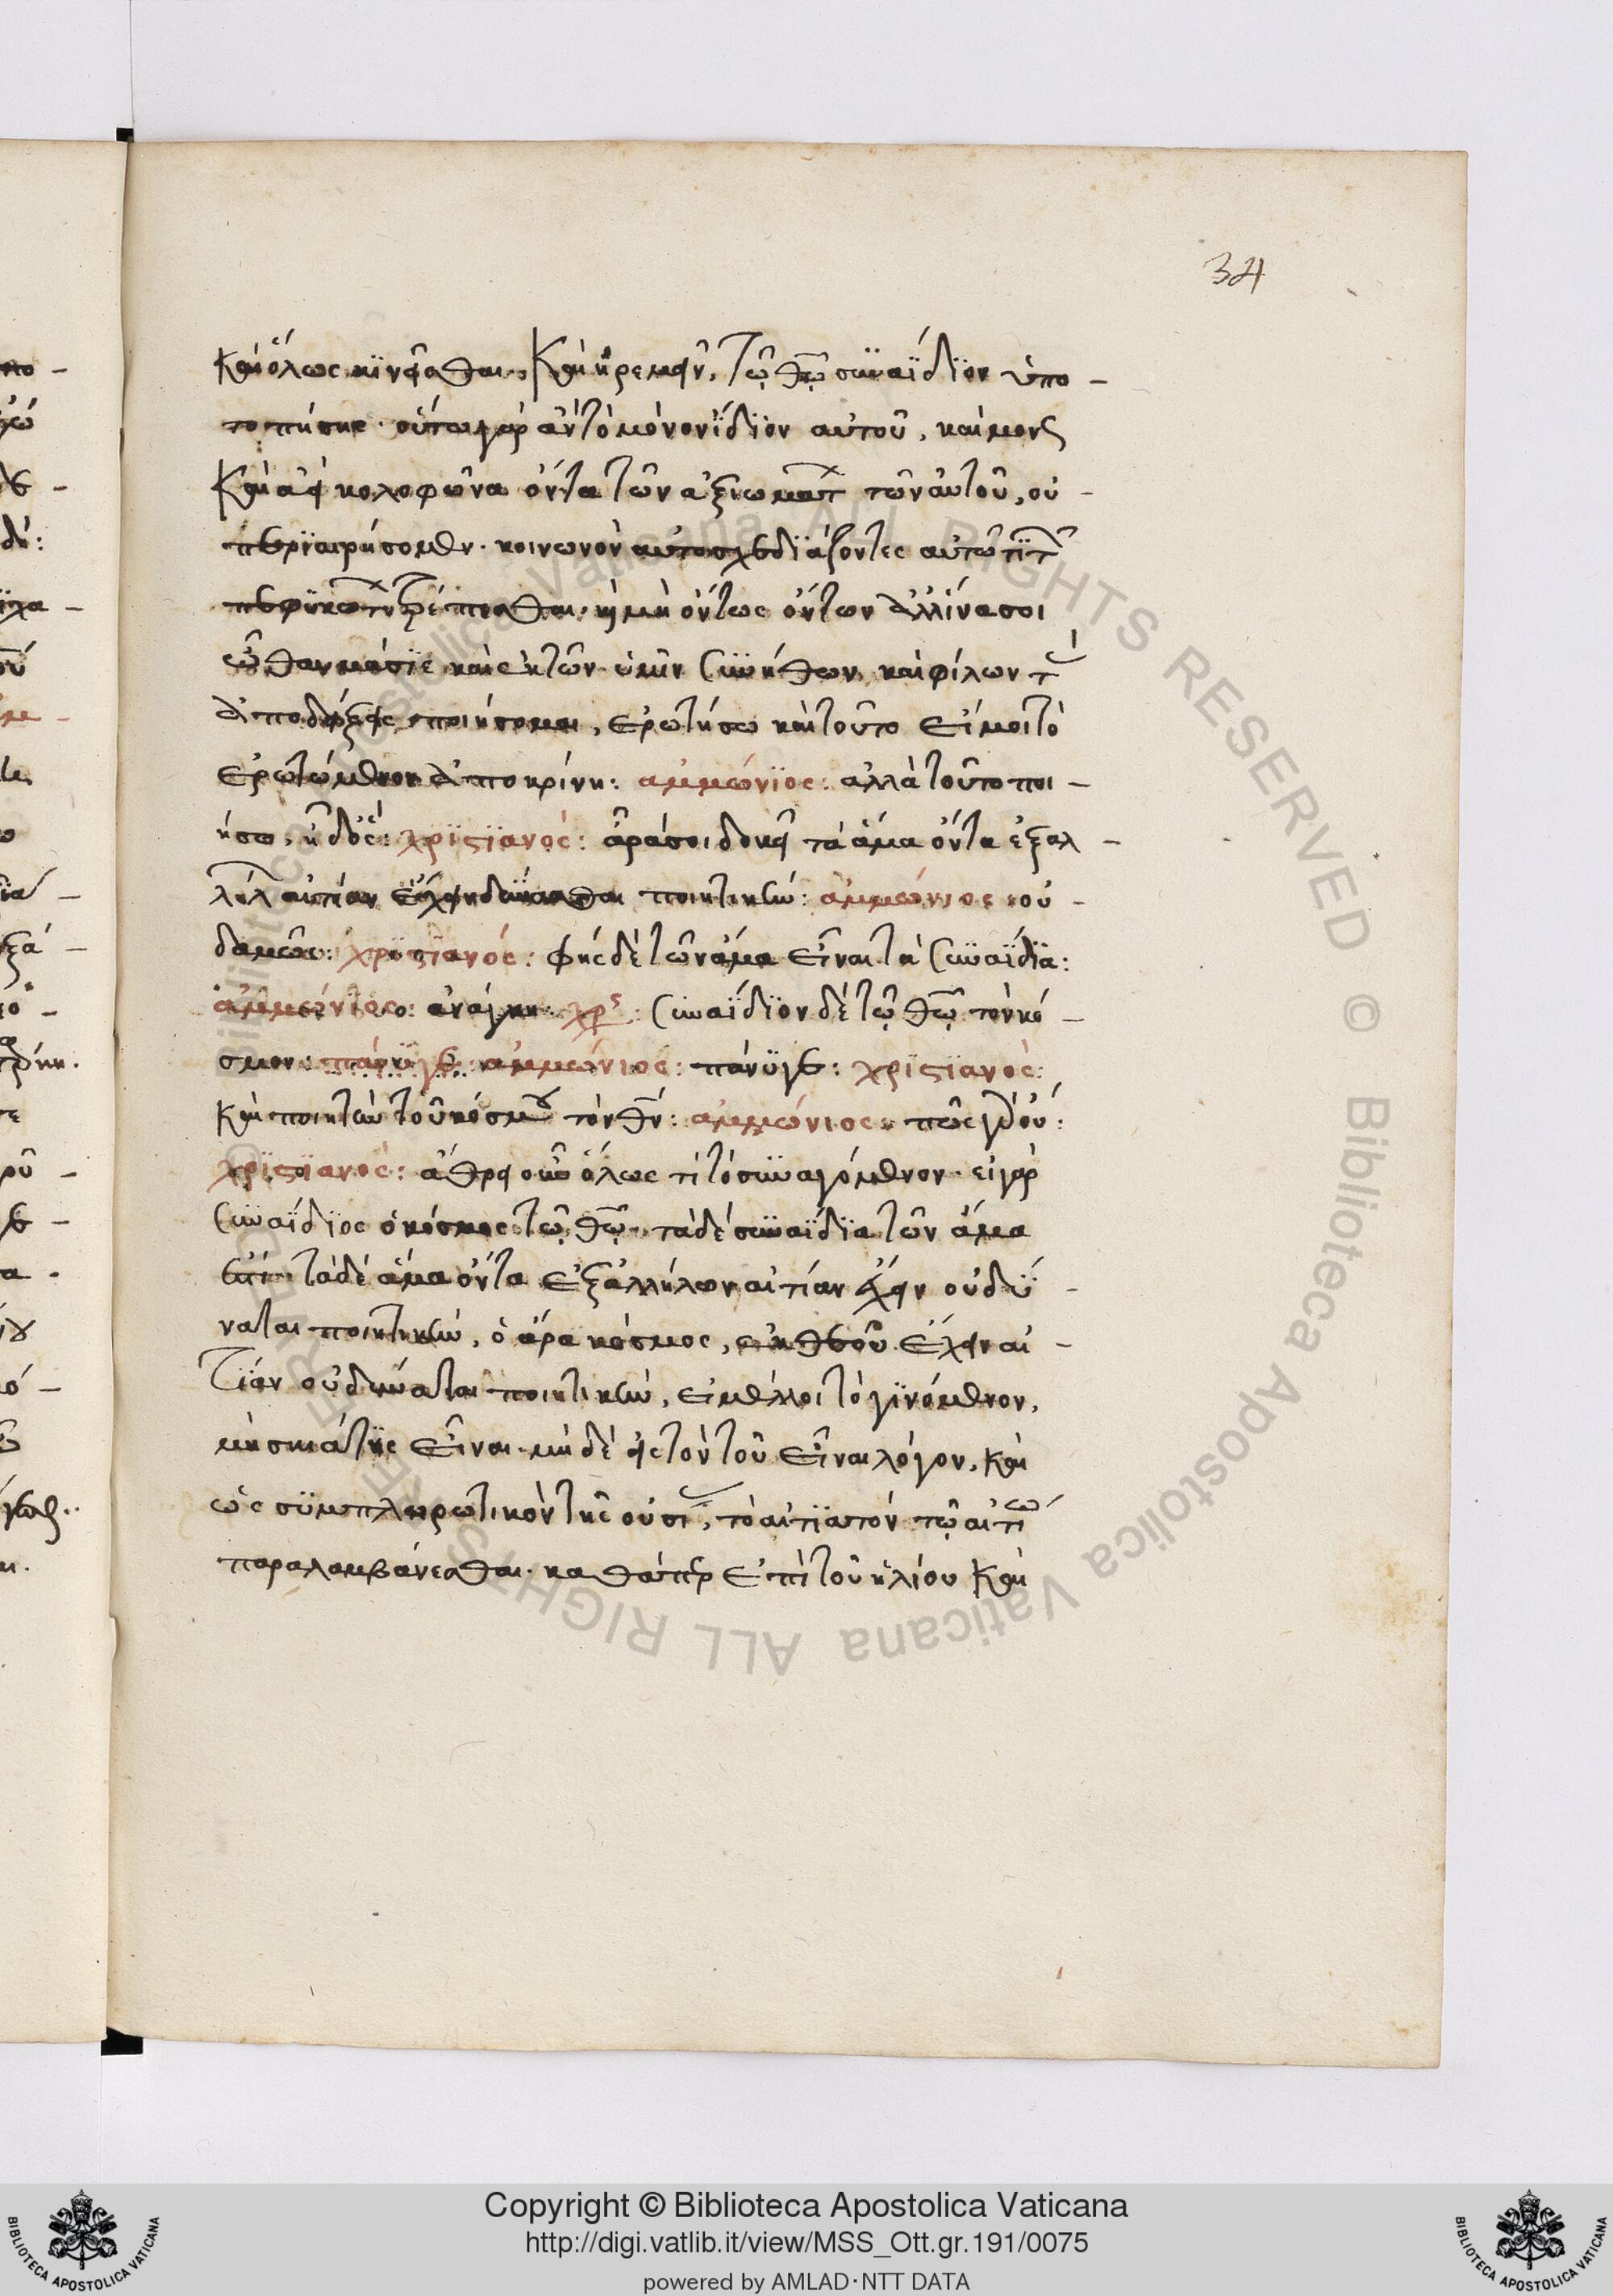 34
καὶ ὅλως κϊνεῖσθαι, καὶ ἠρεμεῖν, τῷ θ͞ω συναΐδϊον ὑπο -
τοπήσῃς· οὕτω γὰρ ἂν τὸ μόνον ἴδϊον αὐτοῦ, καὶ μόνς
καὶ ἀεὶ κολοφῶνα ὄντα τῶν ἀξιωματ τῶν αὐτοῦ, οὐ -
περϊαιρήσομεν· κοινωνὸν αὐτοσχεδϊάζοντες αὐτῶ
τρέπεσθαι, ἢ μὴ ὄντως ὄντων ἀλλ' ἵνα σοι
ὦ θαυμάσϊε καὶ ἐκ τῶν ὑμῖν συνήθων καὶ φίλων τ
ἀποδείξεις ποιήσομαι, ἐρωτήσω καὶ τοῦτο εἴ μοι τὸ
ἐρωτώμενον ἀποκρίνῃ: ἀμμώνϊος: ἀλλὰ τοῦτο ποι -
ήσω, : χρϊστϊανός: ἆρά σοι δοκεῖ τὰ ἅμα ὄντα ἐξ αλ -
λήλ αἰτίαν ἔχειν δύνασθαι ποιητικήν: ἀμμώνιος: οὐ -
δαμῶς: χρϊστϊανός: φῂς δὲ τῶν ἅμα εἶναι τὰ συναΐδϊα:
ἀμμώνϊος: ἀνάγκη: χρς: συναΐδϊον δὲ τῷ θ͞ω τὸν κό -
σμον: πάνϋγε: ἀμμώνιος: πάνϋγε: χρϊστϊανός:
καὶ ποιητὴν τοῦ κόσμου τὸν θ͞ν: ἀμμώνιος: πῶς γὰρ οὔ:
χρϊστϊανός: ἄθρει οὖν ὅλως τί τὸ συναγόμενον· εἰ γὰρ
συναΐδϊος ὁ κόσμος τῷ θ͞ω, τὰ δὲ συναΐδϊα τῶν ἅμα
ἐστὶ τὰ δὲ ἅμα ὄντα ἐξ ἀλλήλων αἰτίαν ἔχειν οὐ δύ -
ναται ποιητικήν, ὁ ἄρα κόσμος, ἐκ θεοῦ ἔχειν αἰ -
τΐαν οὐ δύναται ποιητικήν, εἰ μέλλοι τὸ γϊνόμενον,
μὴ σκιά τϊς εἶναι· μὴ δὲ εἰς τὸν τοῦ εἶναι λόγον, καὶ
ὡς συμπληρωτικὸν τῆς οὐσΐ, τὸ αἰτϊατὸν τῷ αἰτίω
παραλαμβάνεσθαι· καθάπερ ἐπὶ τοῦ ἡλίου καὶ
Copyright © Biblioteca Apostolica Vaticana
http://digi.vatlib.it/view/MSS_Ott.gr.191/0075
powered by AMLAD·NTT DATA